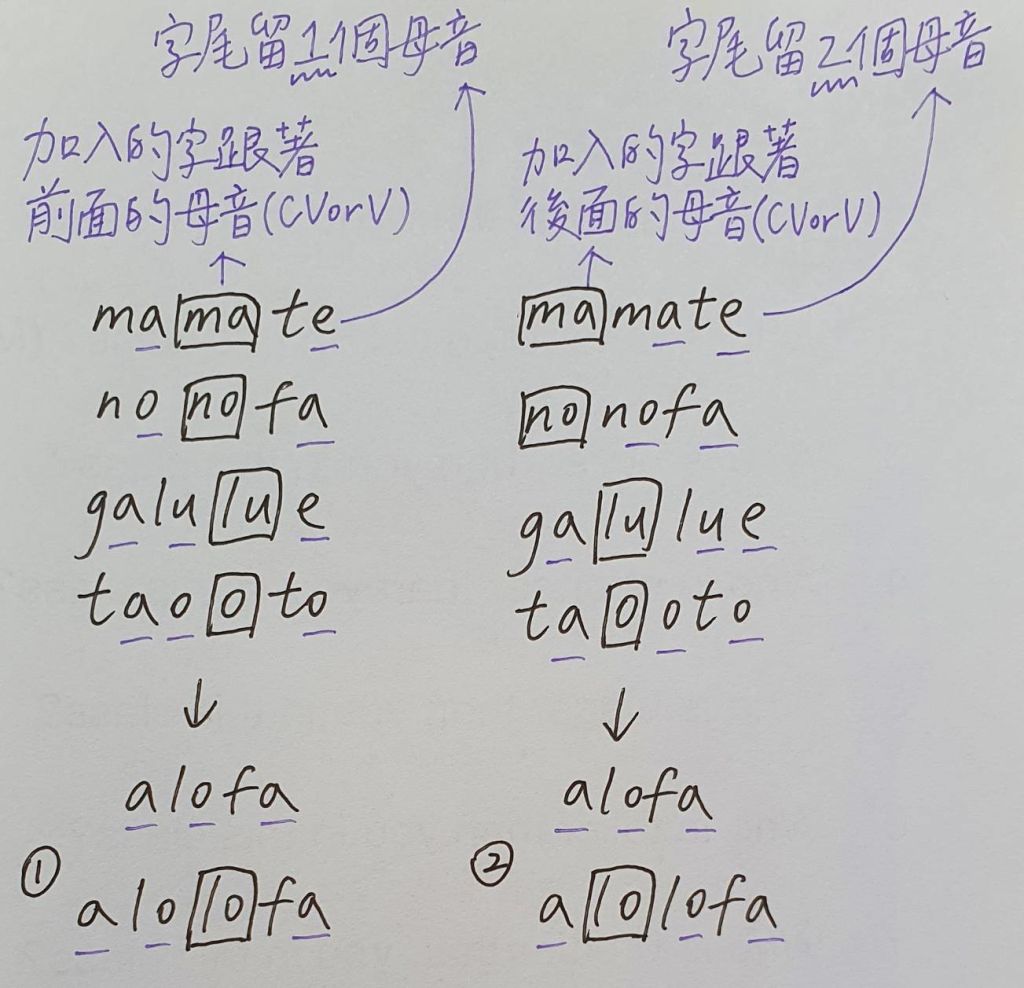 字尾留1個母音
加入的字跟著
前面的母音(CVorV)
mamate
nonofa
galulue
taooto
alofa
① alolofa
字尾留2個母音
加入的字跟著
後面的母音(CVorV)
mamate
nonofa
galulue
taooto
alofa
② alolofa